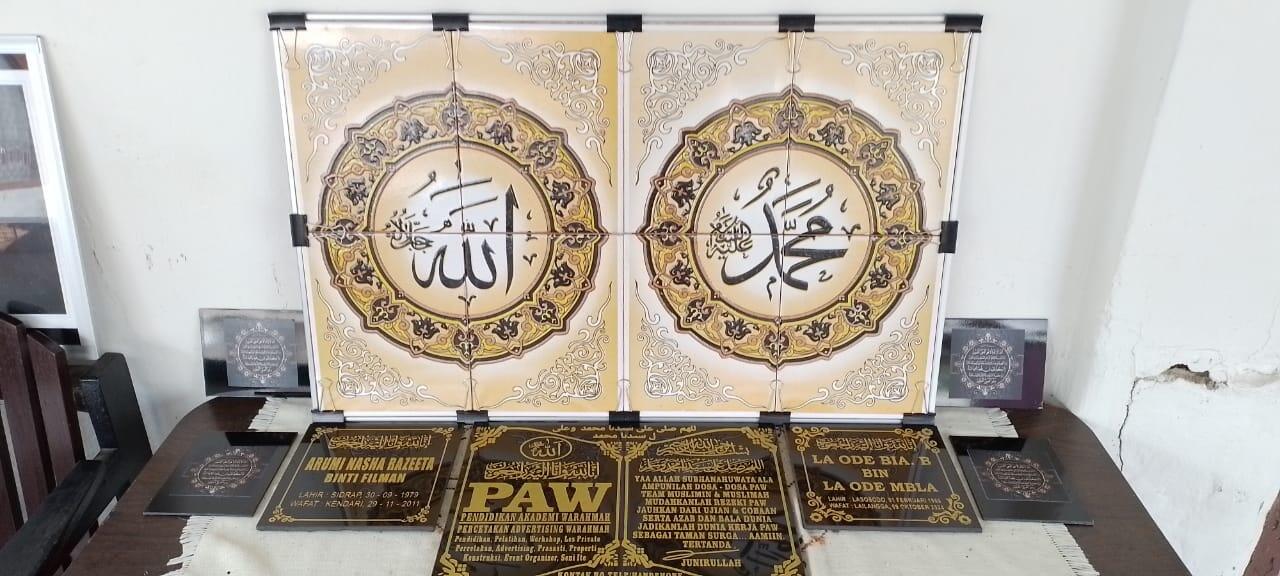 الله
جل جلاله
محمد
عليه السلام
ARUMI NASHA RAZEETA
BINTI FILMAN
LAHIR : SIDRAP, 30 - 09 - 1979
WAFAT : KENDARI, 29 - 11 - 2011
للهم صلى على سيدنا محمد وعلى
ل سيدنا محمد
الله
PAW
PENDIDIKAN AKADEMI WARAHMAH
PERCETAKAN ADVERTISING WARAHMAH
Pendidikan, Pelatihan, Workshop, Les Private
Percetakan, Advertising, Prasasti, Properti
Konstruksi, Event Organizer, Seni Ite
KONTAK NO TELP/HANDPHONE
YAA ALLAH SUBHANAHUWATA ALA
AMPUNILAH DOSA - DOSA PAW
TEAM MUSLIMIN & MUSLIMAH
MUDAHKANLAH REZEKI PAW
JAUHKAN DARI UJIAN & COBAAN
SERTA AZAB DAN BALA DUNIA
JADIKANLAH DUNIA KERJA PAW
SEBAGAI TAMAN SURGA... AAMIIN.
TERTANDA
JUNIRULLAH
LA ODE BIA. B
BIN
LA ODE MBLA
LAHIR : LASOSODO, 01 FEBRUARI
WAFAT : LAILANGGA, OKTOBER